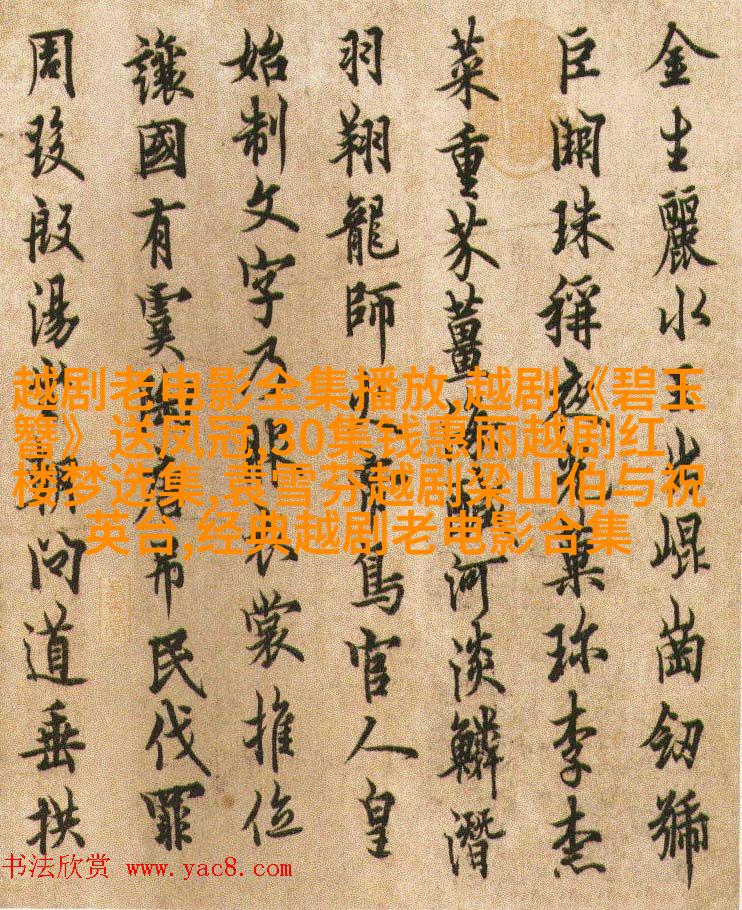 金生麗水玉出崐崗劒號
巨闕珠稱夜光菓珎李柰
菜重芥薑海醎河淡鱗潛
羽翔龍師火帝鳥官人皇
始制文字乃服衣裳推位
讓國有虞陶唐弔民伐罪
周發殷湯坐朝問道垂拱
越剧老电影全集播放,越剧《碧玉
簪》送凤冠,30集钱惠丽越剧红
楼梦选集,袁雪芬越剧梁山伯与祝
英台,经典越剧老电影合集
书法欣赏 www.yac8.com